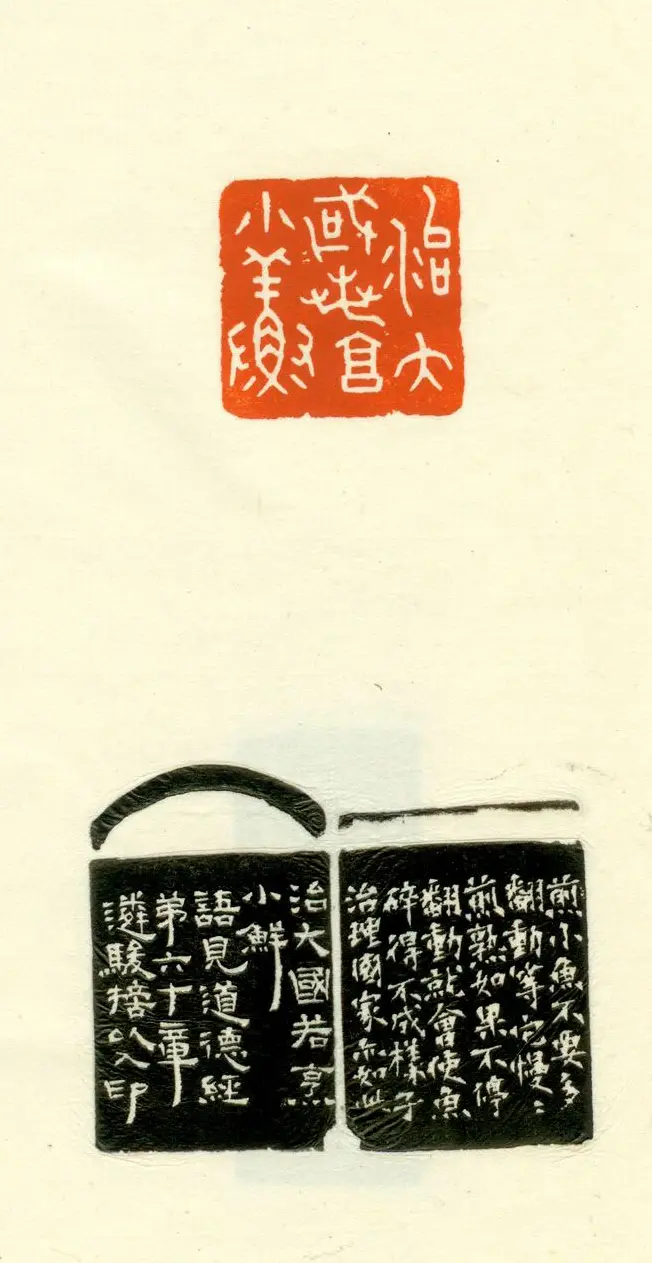 治大
國若亯
小鮮
煎小魚不要多
翻動等它慢〻
煎熟如果不停
翻動就會使魚
碎得不成樣子
治理國家亦如此
治大國若烹
小鮮
語見道德經
第六十章
遴駿以入印